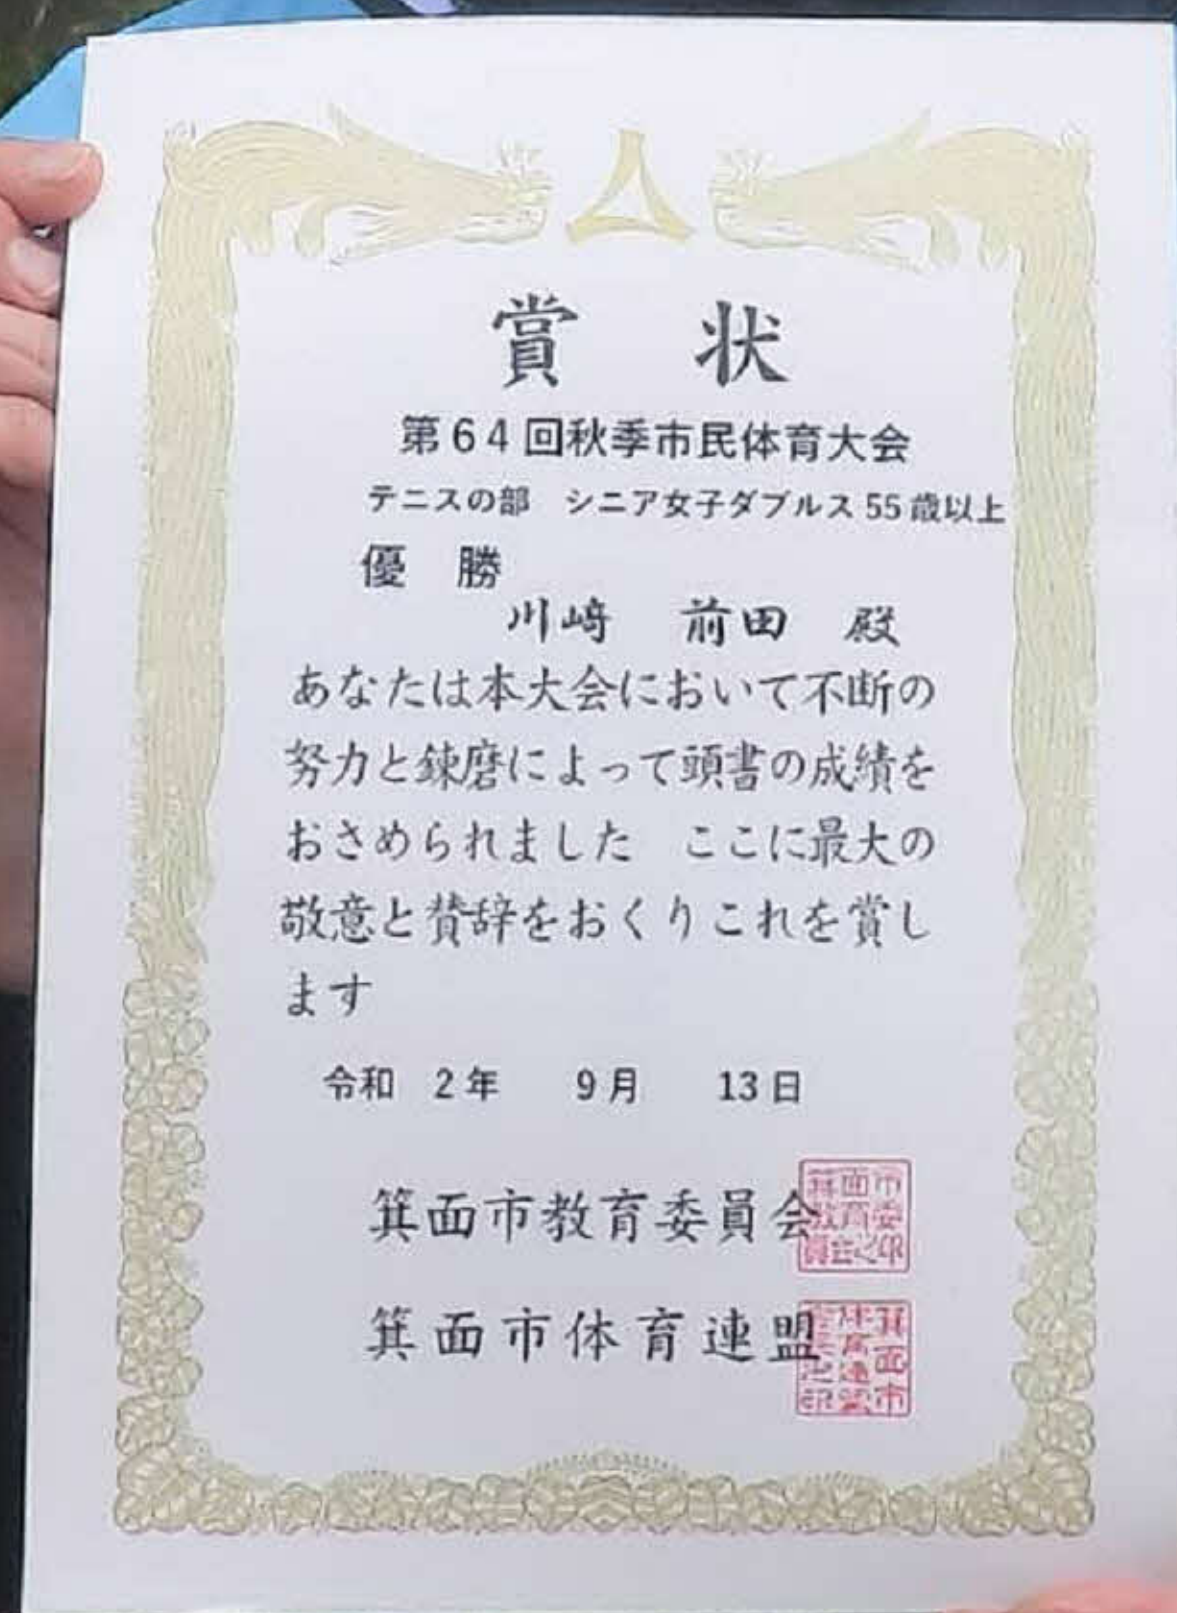 賞 状
第64回秋季市民体育大会
テニスの部 シニア女子ダブルス55歳以上
優 勝
川﨑 前田 殿
あなたは本大会において不断の
努力と錬磨によって頭書の成績を
おさめられました ここに最大の
敬意と賛辞をおくりこれを賞し
ます
令和 2年 9月 13日
箕面市教育委員会
箕面市体育連盟